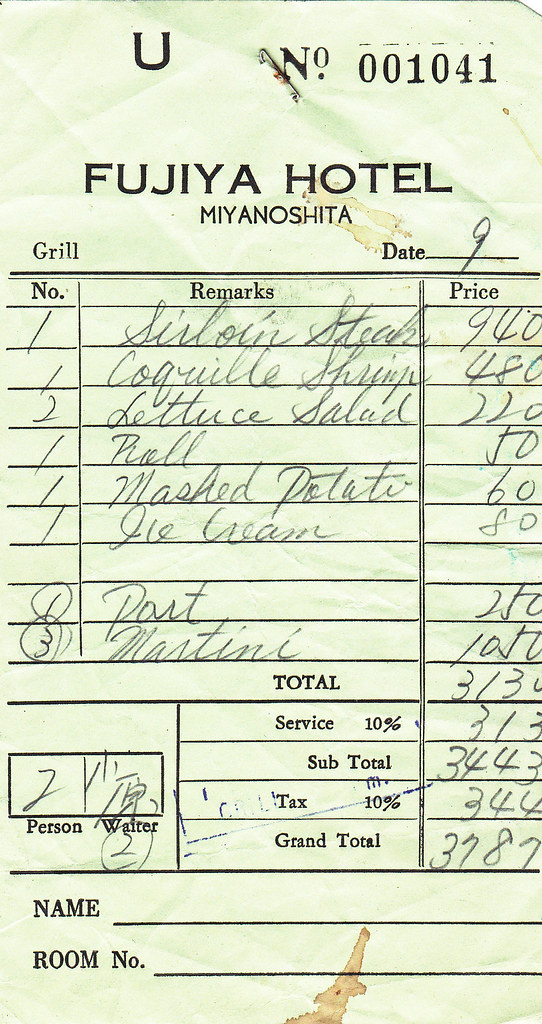 U Nº 001041
FUJIYA HOTEL
MIYANOSHITA
Grill Date 9
No. Remarks Price
1 Sirloin Steak 940
1 Coquille Shrimp 480
2 Lettuce Salad 220
1 Roll 50
1 Mashed Potato 60
1 Ice Cream 80
1 Port 250
3 Martini 1050
TOTAL 3130
Service 10% 313
Sub Total 3443
Tax 10% 344
Grand Total 3787
2
Person Waiter
2
NAME
ROOM No.